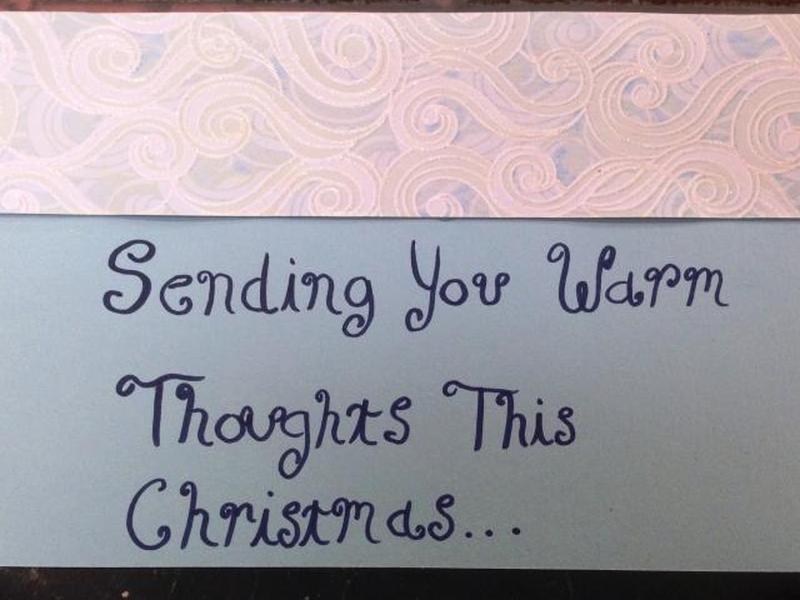 Sending You Warm
Thoughts This
Christmas...